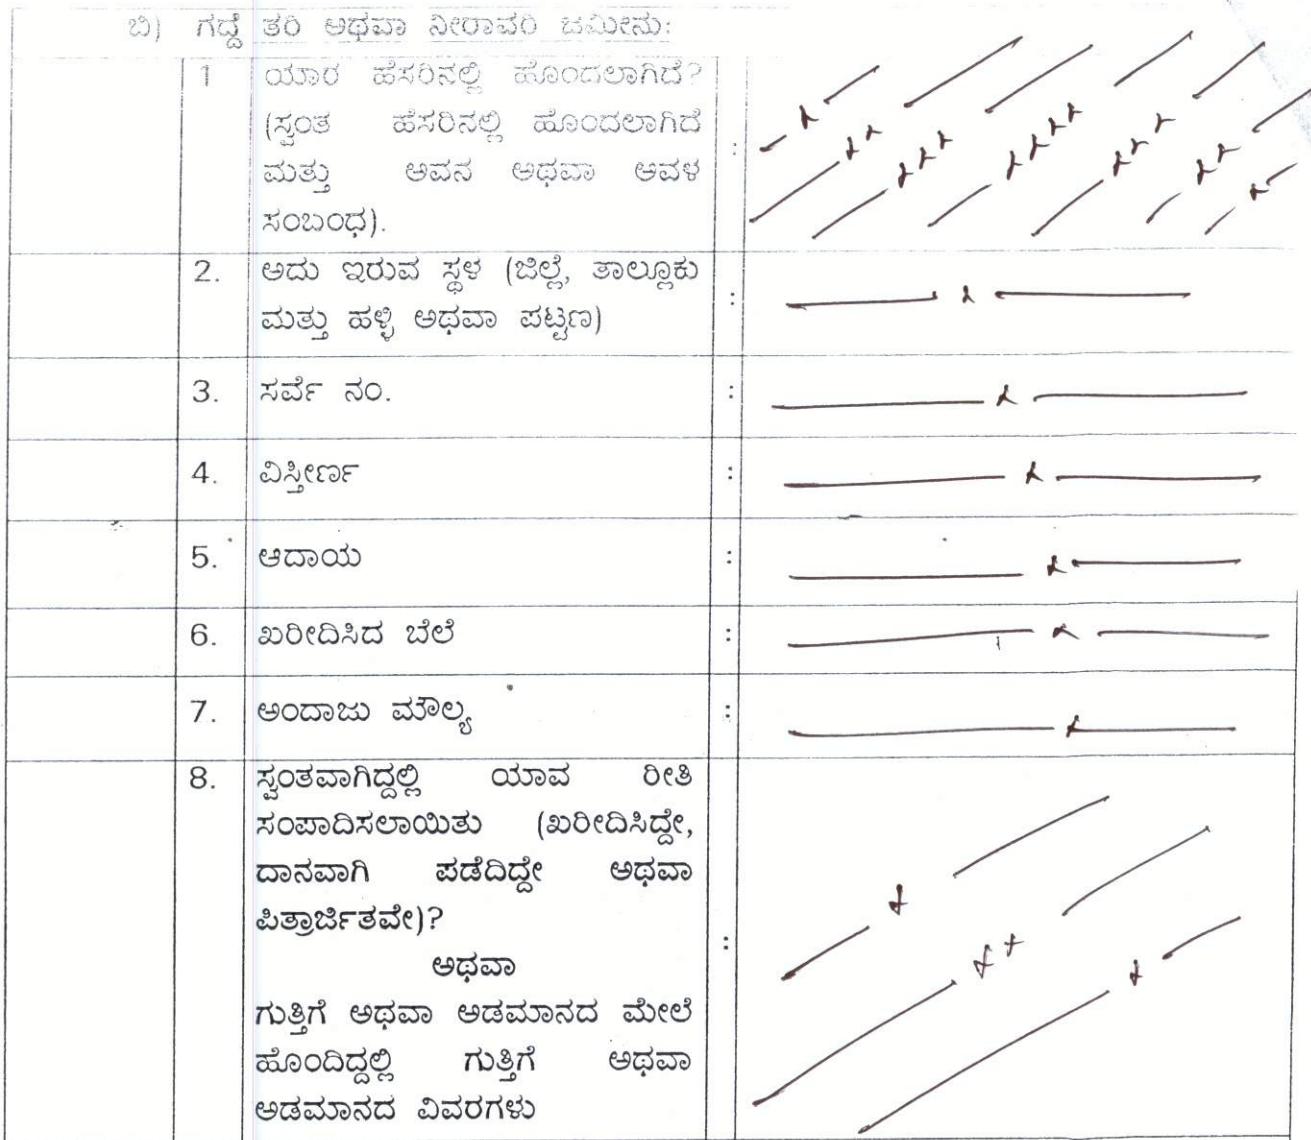 ಬಿ) ಗದ್ದೆ ತರಿ ಅಥವಾ ನೀರಾವರಿ ಜಮೀನು:
1 ಯಾರ ಹೆಸರಿನಲ್ಲಿ ಹೊಂದಲಾಗಿದೆ?
(ಸ್ವಂತ ಹೆಸರಿನಲ್ಲಿ ಹೊಂದಲಾಗಿದೆ
ಮತ್ತು ಅವನ ಅಥವಾ ಅವಳ :
ಸಂಬಂಧ).
2. ಅದು ಇರುವ ಸ್ಥಳ (ಜಿಲ್ಲೆ, ತಾಲ್ಲೂಕು
ಮತ್ತು ಹಳ್ಳಿ ಅಥವಾ ಪಟ್ಟಣ) :
3. ಸರ್ವೆ ನಂ. :
4. ವಿಸ್ತೀರ್ಣ :
5. ಆದಾಯ :
6. ಖರೀದಿಸಿದ ಬೆಲೆ :
7. ಅಂದಾಜು ಮೌಲ್ಯ :
8. ಸ್ವಂತವಾಗಿದ್ದಲ್ಲಿ ಯಾವ ರೀತಿ
ಸಂಪಾದಿಸಲಾಯಿತು (ಖರೀದಿಸಿದ್ದೇ,
ದಾನವಾಗಿ ಪಡೆದಿದ್ದೇ ಅಥವಾ
ಪಿತ್ರಾರ್ಜಿತವೇ)?
ಅಥವಾ :
ಗುತ್ತಿಗೆ ಅಥವಾ ಅಡಮಾನದ ಮೇಲೆ
ಹೊಂದಿದ್ದಲ್ಲಿ ಗುತ್ತಿಗೆ ಅಥವಾ
ಅಡಮಾನದ ವಿವರಗಳು